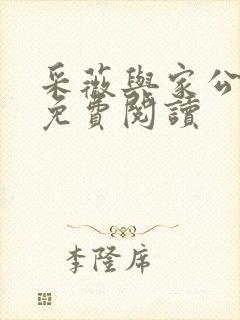 采薇與家公
免費閱讀
李隆席